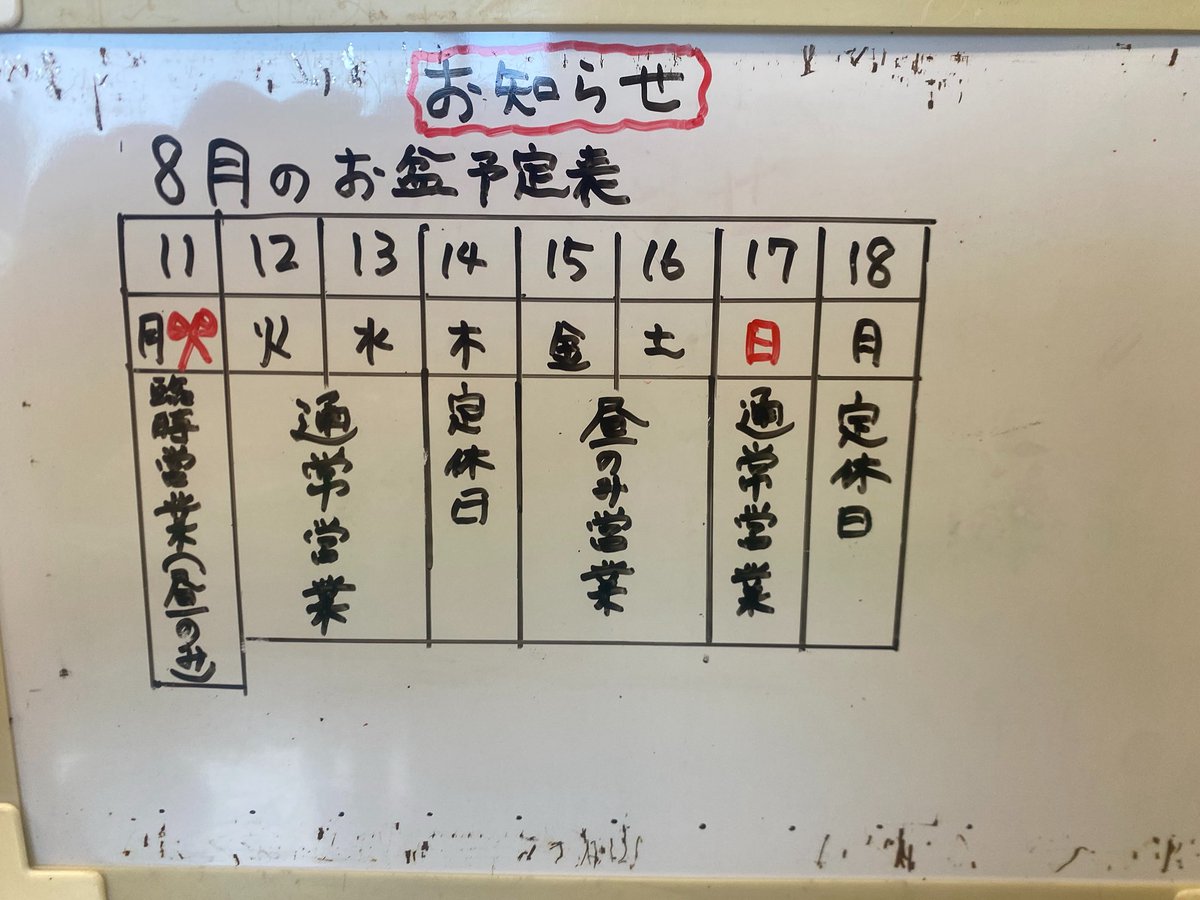 お知らせ
8月のお盆予定表
11 12 13 14 15 16 17 18
月 火 水 木 金 土 日 月
臨時営業(昼のみ)
通常営業
定休日
昼のみ営業
通常営業
定休日